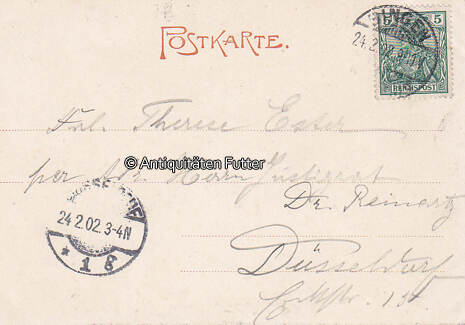 POSTKARTE.
BINGEN
24.2.02
5 5
REICHSPOST
Frl. Therese Ester
© Antiquitäten Futter
per Adr. Herrn Justizrat
Dr. Reinartz
DÜSSELDORF
24 2.02.3-4N
* 1 g
Düsseldorf